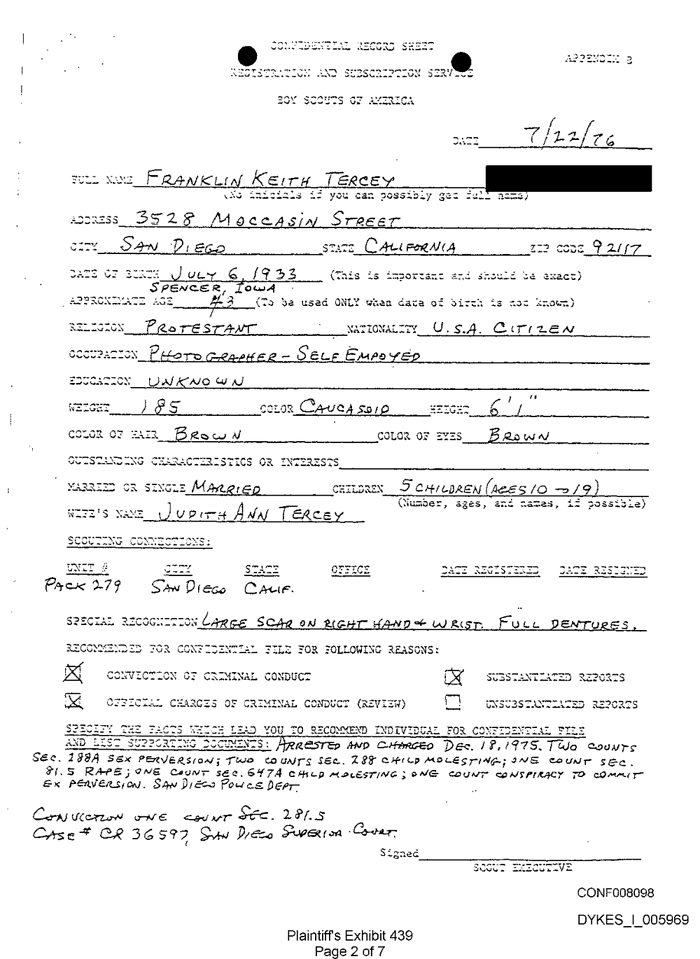 CONFIDENTIAL RECORD SHEET
APPENDIX B
REGISTRATION AND SUBSCRIPTION SERVICE
BOY SCOUTS OF AMERICA
DATE 7/22/76
FULL NAME FRANKLIN KEITH TERCEY
(No initials if you can possibly get full name)
ADDRESS 3528 MOCCASIN STREET
CITY SAN DIEGO STATE CALIFORNIA ZIP CODE 92117
DATE OF BIRTH JULY 6, 1933 (This is important and should be exact)
SPENCER, IOWA
APPROXIMATE AGE 43 (To be used ONLY when date of birth is not known)
RELIGION PROTESTANT NATIONALITY U.S.A. CITIZEN
OCCUPATION PHOTOGRAPHER - SELF EMPOYED
EDUCATION UNKNOWN
WEIGHT 185 COLOR CAUCASOID HEIGHT 6'1"
COLOR OF HAIR BROWN COLOR OF EYES BROWN
OUTSTANDING CHARACTERISTICS OR INTERESTS
MARRIED OR SINGLE MARRIED CHILDREN 5 CHILDREN (AGES 10 → 19)
(Number, ages, and names, if possible)
WIFE'S NAME JUDITH ANN TERCEY
SCOUTING CONNECTIONS:
UNIT # CITY STATE OFFICE DATE REGISTERED DATE RESIGNED
PACK 279 SAN DIEGO CALIF.
SPECIAL RECOGNITION LARGE SCAR ON RIGHT HAND & WRIST. FULL DENTURES.
RECOMMENDED FOR CONFIDENTIAL FILE FOR FOLLOWING REASONS:
CONVICTION OF CRIMINAL CONDUCT SUBSTANTIATED REPORTS
OFFICIAL CHARGES OF CRIMINAL CONDUCT (REVIEW) UNSUBSTANTIATED REPORTS
SPECIFY THE FACTS WHICH LEAD YOU TO RECOMMEND INDIVIDUAL FOR CONFIDENTIAL FILE
AND LIST SUPPORTING DOCUMENTS: ARRESTED AND CHARGED DEC. 18, 1975. TWO COUNTS
SEC. 288A SEX PERVERSION; TWO COUNTS SEC. 288 CHILD MOLESTING; ONE COUNT SEC.
81.5 RAPE; ONE COUNT SEC. 647A CHILD MOLESTING; ONE COUNT CONSPIRACY TO COMMIT
EX PERVERSION. SAN DIEGO POLICE DEPT.
CONVICTION ONE COUNT SEC. 281.5
CASE # CR 36597, SAN DIEGO SUPERIOR COURT.
Signed
SCOUT EXECUTIVE
CONF008098
DYKES_I_005969
Plaintiff's Exhibit 439
Page 2 of 7